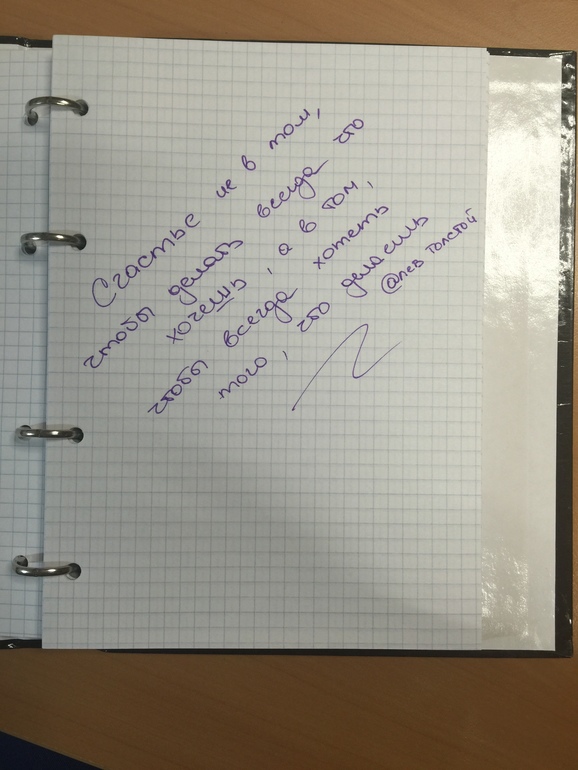 Счастье не в том,
чтобы делать всегда что
хочешь, а в том,
чтобы всегда хотеть
того, что делаешь
@лев толстой